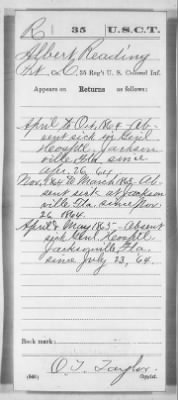 R 35 U.S.C.T.
Albert Reading
Pvt., Co. C, 35 Reg't U. S. Colored Inf.
Appears on
Returns as follows:
April to Oct. 1864 - Ab-
sent sick in Genl
Hosptl. Jackson-
ville Fla. since
Apr. 26, 64
Nov. 1864 to March 1865 Ab-
sent sick at Jackson-
ville Fla. since Nov.
26 1864.
April & May 1865 - Absent
sick Genl. Hosptl
Jacksonville Fla.
since July 23, 64.
Book mark:
(546)
O. T. Taylor
Copyist.